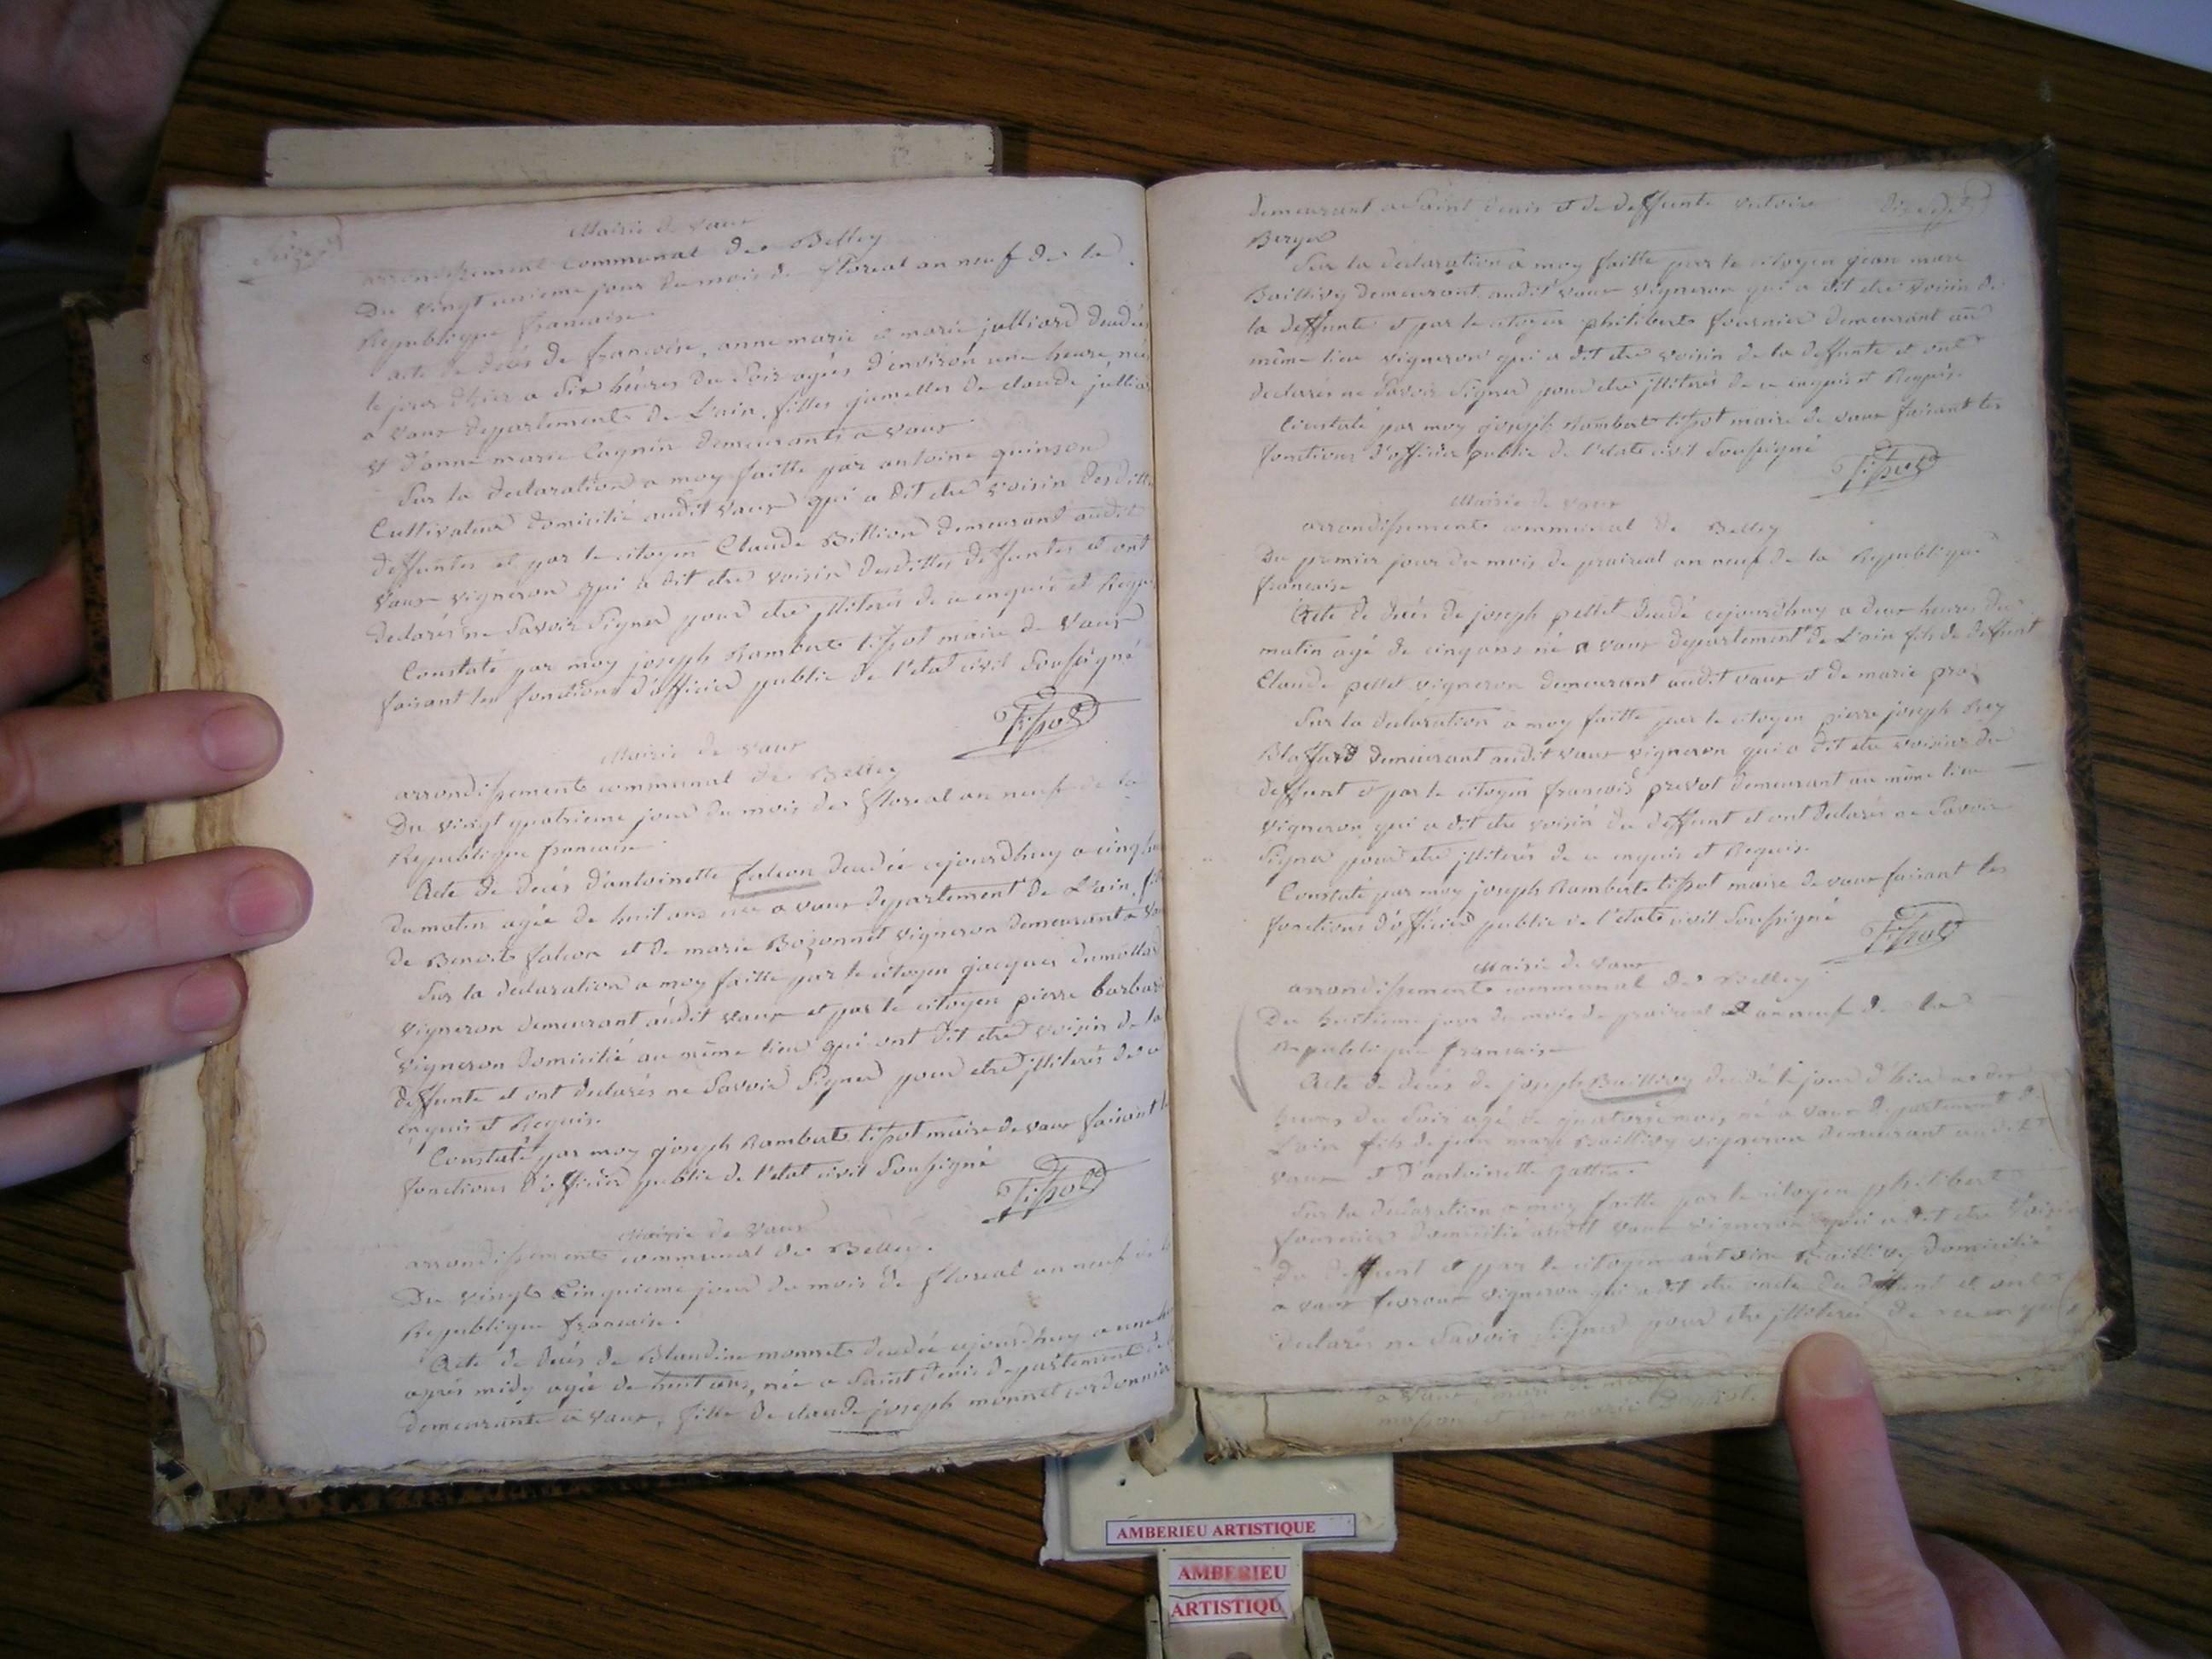 Mairie de Vaux
arrondissement communal de Belley
Du vingt unieme jour du mois de floreal an neuf de la
Republique francaise
acte de decés de francoise, anne marie & marie julliard decedées
le jour d'hier a six heures du soir agées d'environ une heure nées
a Vaux departement de L'ain, filles jumelles de claude julliard
et d'anne marie Cagnin demeurants a vaux
Sur la declaration a moy faitte par antoine quinson
Cultivateur domicilié audit Vaux qui a dit etre voisin desdittes
deffuntes et par le citoyen Claude Billion demeurant audit
Vaux vigneron qui a dit etre voisin desdittes deffuntes et ont
declarés ne savoir signer pour etre illiterés de ce enquis et Requis
Constaté par moy joseph Rambert tissot maire de Vaux
faisant les fonctions d'officier public de l'etat civil soussigné
Tissot
Mairie de Vaux
arrondissement communal de Belley
Du vingt quatrieme jour du mois de floreal an neuf de la
Republique francaise
Acte de decés d'antoinette falcon decedée cejourdhuy a cinq
du matin agée de huit ans née a vaux departement de L'ain, fille
de Benoit falcon et de marie Bozonnet vigneron demeurant a
Sur la declaration a moy faitte par le citoyen jacques dumollard
vigneron demeurant audit vaux et par le citoyen pierre barbas
vigneron domicilié au même lieu qui ont dit etre voisin de la
deffunte et ont declarés ne savoir signer pour etre illiterés de ce
enquis et Requis
Constaté par moy joseph Rambert tissot maire de vaux faisant
fonctions d'officier public de l'etat civil soussigné
Tissot
Mairie de Vaux
arrondissement communal de Belley
Du vingt Cinquieme jour du mois de floreal an neuf de
Republique francaise
Acte de decés de Blandine monnet decedée cejourdhuy a une
aprés midy agée de huit ans, née a Saint denis departement de
demeurante a vaux, fille de claude joseph monnet cordonnier
demeurant a Saint denis et de deffunte victoire
Berger
Sur la declaration a moy faitte par le citoyen jean marc
Baillivy demeurant audit vaux vigneron qui a dit etre voisin de
la deffunte et par le citoyen philibert fournier demeurant au
même lieu vigneron qui a dit etre voisin de la deffunte et ont
declarés ne savoir signer pour etre illiterés de ce enquis et Requis
Constaté par moy joseph Rambert tissot maire de vaux faisant les
fonctions d'officier public de l'etat civil soussigné
Tissot
Mairie de Vaux
arrondissement communal de Belley
Du premier jour du mois de prairial an neuf de la Republique
francaise
Acte de decés de joseph pellet decedé cejourdhuy a deux heures du
matin agé de cinq ans né a vaux departement de L'ain fils de deffunt
Claude pellet vigneron demeurant audit vaux et de marie
Sur la declaration a moy faitte par le citoyen pierre joseph Rey
demeurant audit vaux vigneron qui a dit etre voisin du
deffunt et par le citoyen francois prevot demeurant au même lieu
vigneron qui a dit etre voisin du deffunt et ont declarés ne savoir
signer pour etre illiterés de ce enquis et Requis
Constaté par moy joseph Rambert tissot maire de vaux faisant les
fonctions d'officier public de l'etat civil soussigné
Tissot
Mairie de Vaux
arrondissement communal de Belley
Du huitieme jour du mois de prairial an neuf de la
Republique francaise
Acte de decés de joseph Baillivy decedé le jour d'hier a
heures du soir agé de quatorze mois né a vaux departement de
L'ain fils de jean marc Baillivy vigneron demeurant audit
vaux et d'antoinette
Sur la declaration a moy faitte par le citoyen philibert
fournier domicilié audit vaux vigneron qui a dit etre voisin
du deffunt et par le citoyen antoine Baillivy domicilié
a vaux vigneron qui a dit etre oncle du deffunt et ont
declarés ne savoir signer pour etre illiterés de ce enquis
AMBERIEU ARTISTIQUE
AMBERIEU
ARTISTIQU